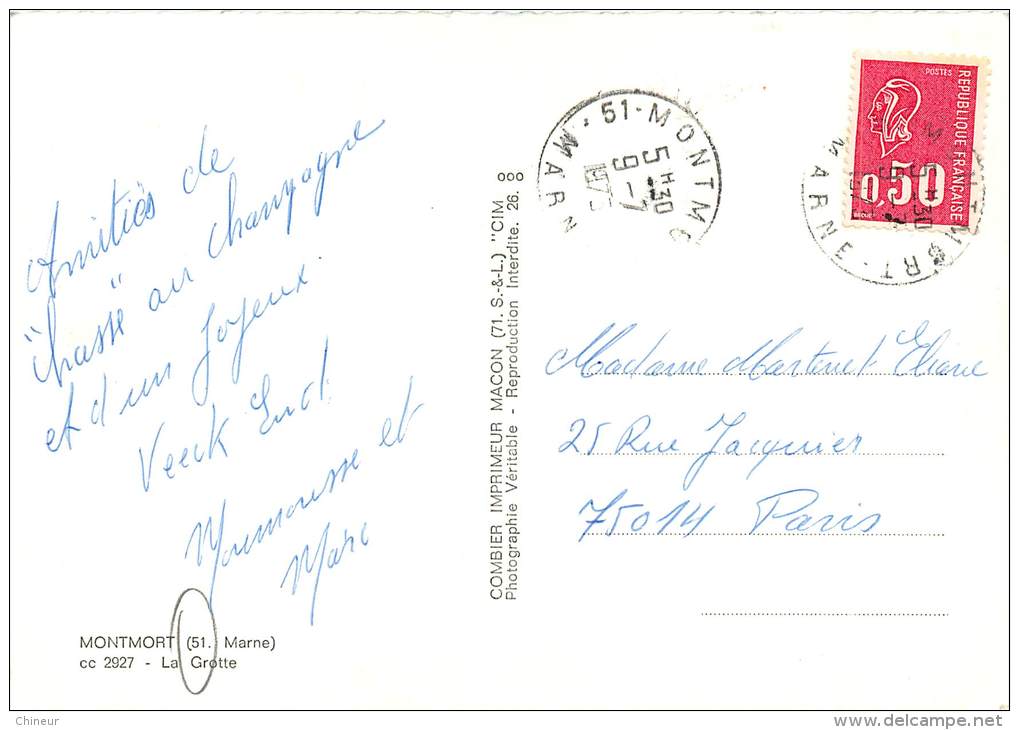 Amitiés de
"chassé" au champagne
et d'un Joyeux
Veeck End.
Moumousse et
Marc
MONTMORT (51. Marne)
cc 2927 - La Grotte
COMBIER IMPRIMEUR MACON (71. S.-&-L.) "CIM
Photographie Véritable - Reproduction Interdite. 26.
51-MONTMO
MARN
5H30
9-7
197
POSTES
REPUBLIQUE FRANÇAISE
0,50
BEQUET
MARNE
5H30
Madame Martinet Eliane
25 Rue Jacquier
75014 Paris
Chineur
delcampe.net